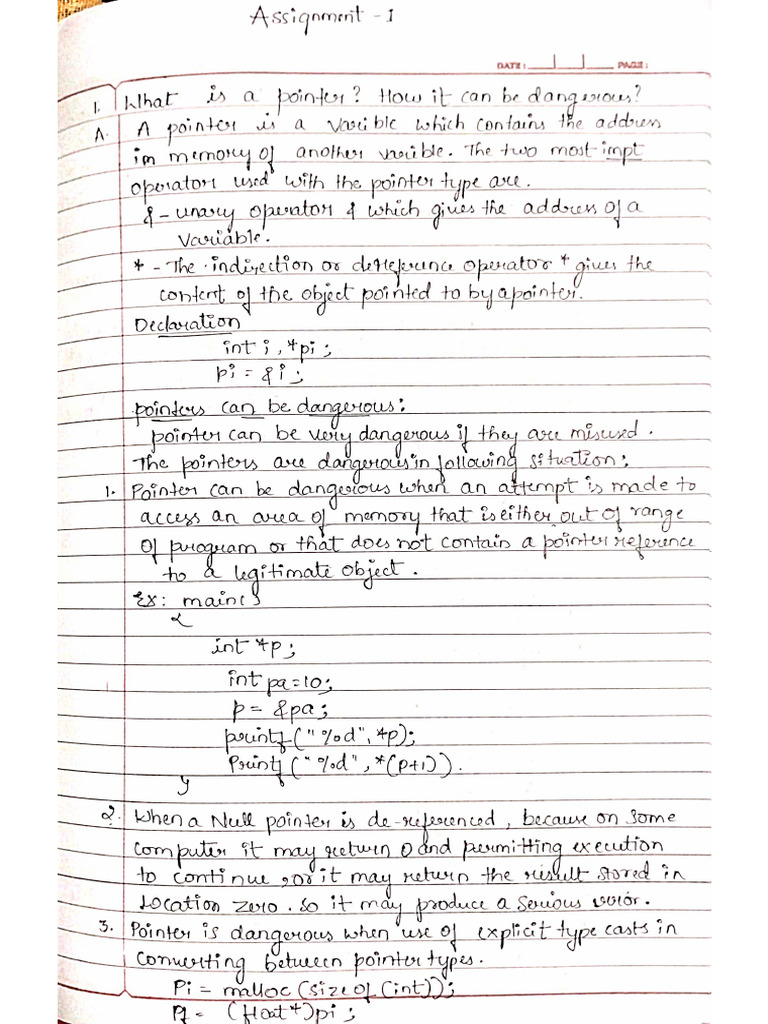 Assignment - 1
DATE: PAGE:
1. What is a pointer? How it can be dangerous?
A. A pointer is a varible which contains the address
in memory of another varible. The two most impt
operator used with the pointer type are.
& - unary operator & which gives the address of a
variable.
* - The indirection or dereference operator * gives the
content of the object pointed to by a pointer.
Declaration
int i, *pi;
pi = &i;
pointers can be dangerous:
pointer can be very dangerous if they are misused.
The pointers are dangerous in following situation:
1. Pointer can be dangerous when an attempt is made to
access an area of memory that is either out of range
of program or that does not contain a pointer reference
to a legitimate object.
Ex: main()
{
int *p;
int pa=10;
p= &pa;
printf("%d", *p);
Printf("%d", *(p+1)).
}
2. When a Null pointer is de-referenced, because on some
computer it may return 0 and permitting execution
to continue, or it may return the result stored in
Location zero. So it may produce a serious error.
3. Pointer is dangerous when use of explicit type casts in
converting between pointer types.
Pi = malloc (size of (int));
Pf = (float*)pi;